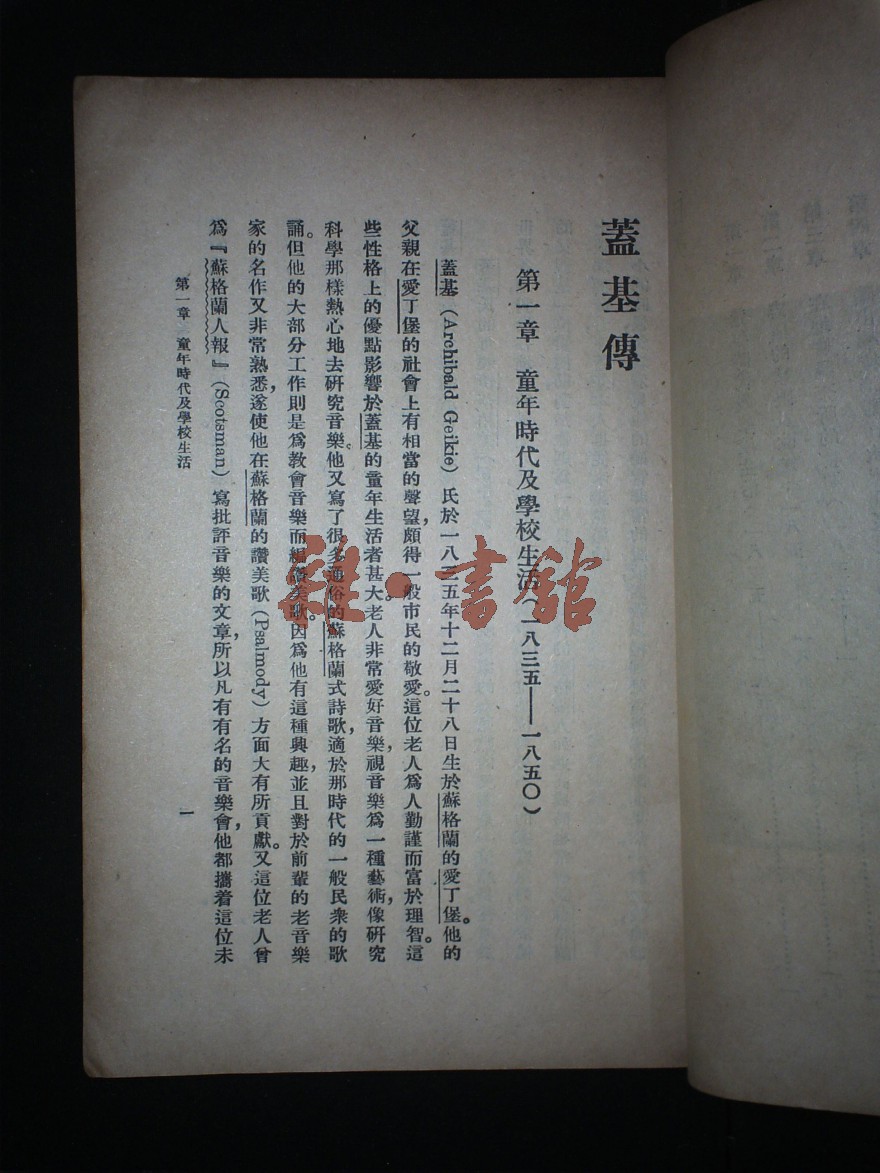 蓋基傳
第一章　童年時代及學校生活（一八三五——一八五〇）
蓋基（Archibald Geikie）氏於一八三五年十二月二十八日生於蘇格蘭的愛丁堡。他的
父親在愛丁堡的社會上有相當的聲望，頗得一般市民的敬愛。這位老人爲人勤謹而富於理智。這
些性格上的優點影響於蓋基的童年生活者甚大。老人非常愛好音樂，視音樂爲一種藝術，像研究
科學那樣熱心地去研究音樂。他又寫了很多通俗的蘇格蘭式詩歌，適於那時代的一般民衆的歌
誦。但他的大部分工作則是爲教會音樂而編讚美歌。因爲他有這種興趣，並且對於前輩的老音樂
家的名作又非常熟悉，遂使他在蘇格蘭的讚美歌（Psalmody）方面大有所貢獻。又這位老人曾
爲『蘇格蘭人報』（Scotsman）寫批評音樂的文章，所以凡有有名的音樂會，他都攜着這位未
第一章　童年時代及學校生活
一
雜·書館